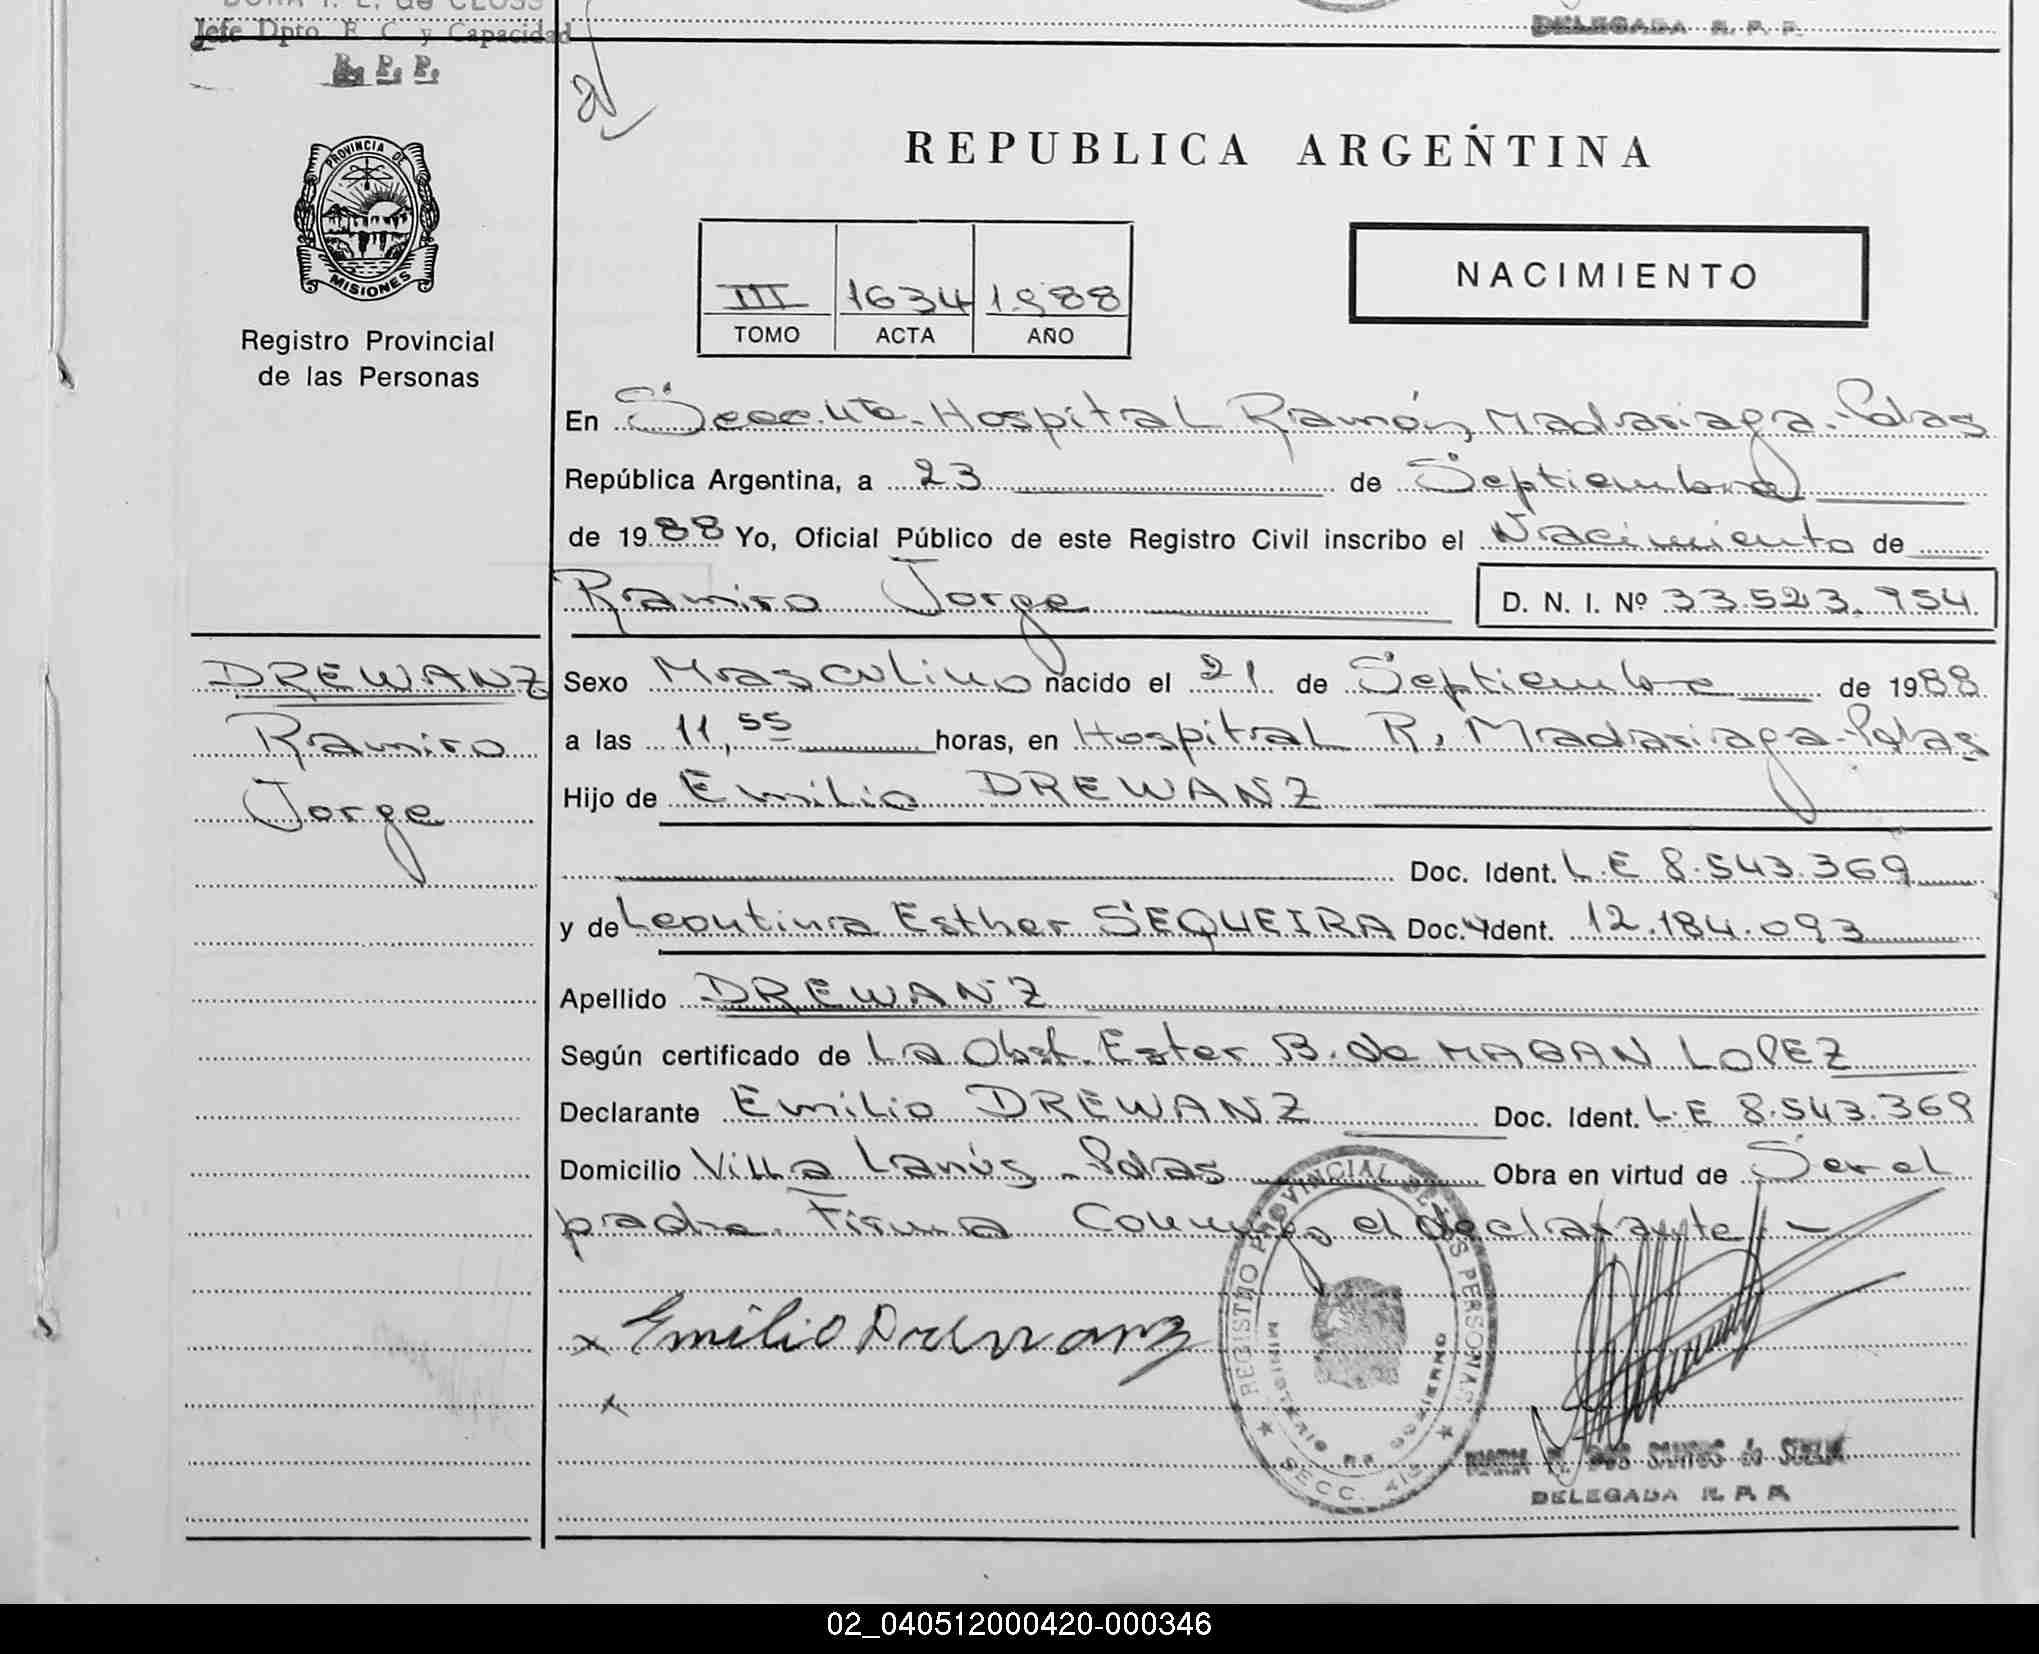 Jefe Dpto. R. C. y Capacidad
R. P. P.
DELEGADA R. P. P.
PROVINCIA DE
MISIONES
Registro Provincial
de las Personas
REPUBLICA ARGENTINA
III 1634 1988
TOMO ACTA AÑO
NACIMIENTO
En Secc. 4ta. Hospital Ramón Madariaga - Pdas
República Argentina, a 23 de Septiembre
de 1988 Yo, Oficial Público de este Registro Civil inscribo el Nacimiento de
Ramiro Jorge D. N. I. Nº 33.523.954
DREWANZ
Ramiro
Jorge
Sexo Masculino nacido el 21 de Septiembre de 1988
a las 11,55 horas, en Hospital R. Madariaga - Pdas
Hijo de Emilio DREWANZ
Doc. Ident. L.E 8.543.369
y de Leontina Esther SEQUEIRA Doc. Ident. 12.184.093
Apellido DREWANZ
Según certificado de La Obst. Ester B. de MAGAN LOPEZ
Declarante Emilio DREWANZ Doc. Ident. L.E 8.543.369
Domicilio Villa Lanús - Pdas Obra en virtud de Ser el
padre. Firma Conmigo el declarante. -
x Emilio Drewanz
x
REGISTRO PROVINCIAL DE LAS PERSONAS
MINISTERIO DE GOBIERNO
SECC. 4ta
DOS SANTOS de
DELEGADA R. P. P.
02_040512000420-000346